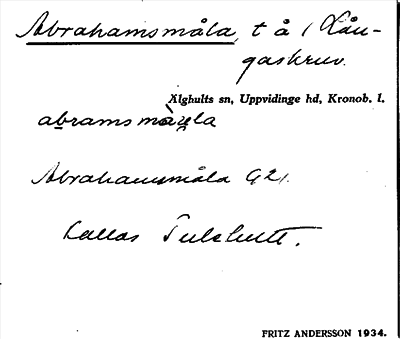 Abrahamsmåla, t å 1 Lån-
gaskruv.
Älghults sn, Uppvidinge hd, Kronob. l.
abramsmåla
Abrahamsmåla G 21.
kallas
FRITZ ANDERSSON 1934.